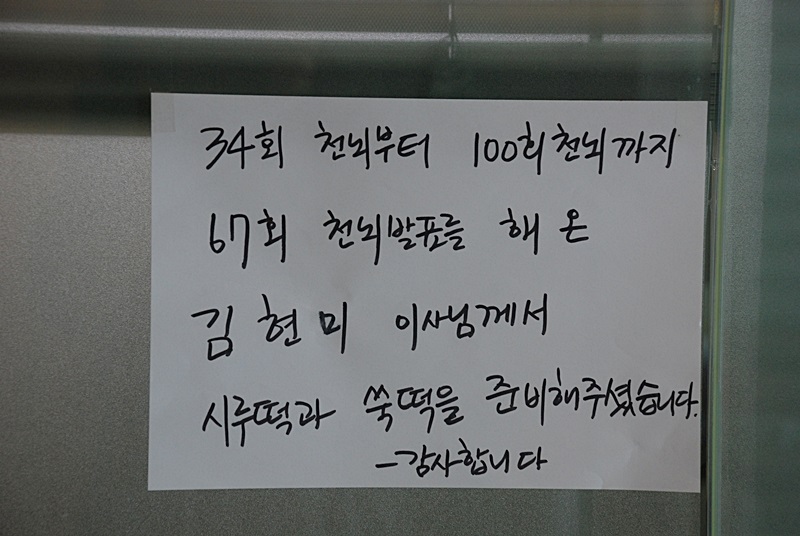 34회 천뇌부터 100회천뇌까지
67회 천뇌발표를 해 온
김현미 이사님께서
시루떡과 쑥떡을 준비해주셨습니다.
-감사합니다